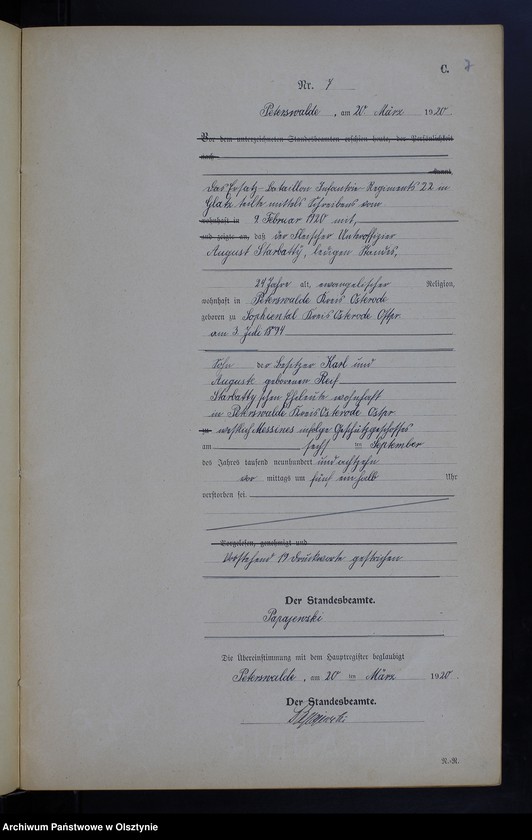 C. 7
Nr. 7
Peterswalde, am 20 März 1920
Vor dem unterzeichneten Standesbeamten erschien heute, der Persönlichkeit
nach
kannt,
Das Ersatz-Bataillon Infanterie-Regiments 22 in
Glatz teilte mittels Schreibens vom
wohnhaft in 9. Februar 1920 mit,
und zeigte an, daß der Fleischer Unteroffizier
August Starbatty, ledigen Standes,
24 Jahre alt, evangelischer Religion,
wohnhaft in Peterswalde Kreis Osterode
geboren zu Sophiental Kreis Osterode Ostpr
am 3. Juli 1894
Sohn der Besitzer Karl und
Auguste geborenen Reif
Starbatty'schen Eheleute wohnhaft
in Peterswalde Kreis Osterode Ostpr
zu westlich Messines infolge Geschützgeschosses
am sechs ten September
des Jahres tausend neunhundert und achtzehn
vor mittags um fünf ein halb Uhr
verstorben sei.
Vorgelesen, genehmigt und
Vorstehend 19 Druckworte gestrichen
Der Standesbeamte.
Papajewski
Die Übereinstimmung mit dem Hauptregister beglaubigt
Peterswalde, am 20 ten März 1920
Der Standesbeamte.
N.-R.
Archiwum Państwowe w Olsztynie